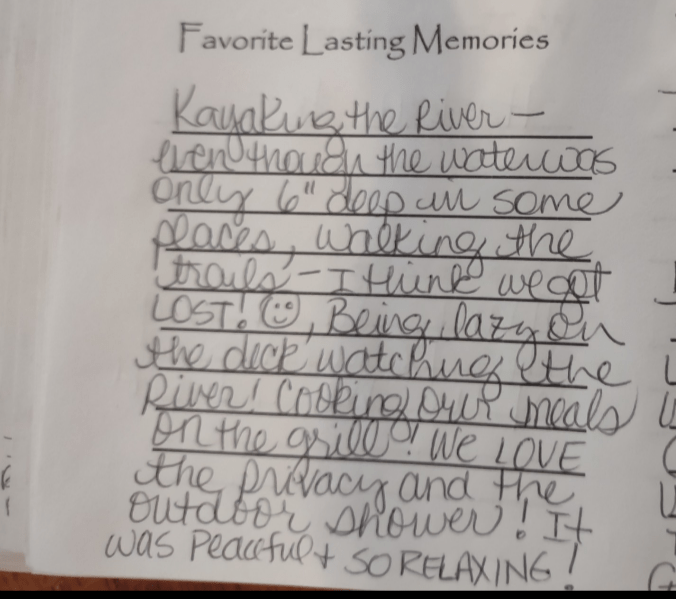 Favorite Lasting Memories
Kayaking the River –
even though the water was
only 6" deep in some
places, walking the
trails – I think we got
LOST! ☺, Being lazy on
the deck watching the
River! Cooking our meals
on the grill! We LOVE
the privacy and the
outdoor shower! It
was Peaceful + SO RELAXING!